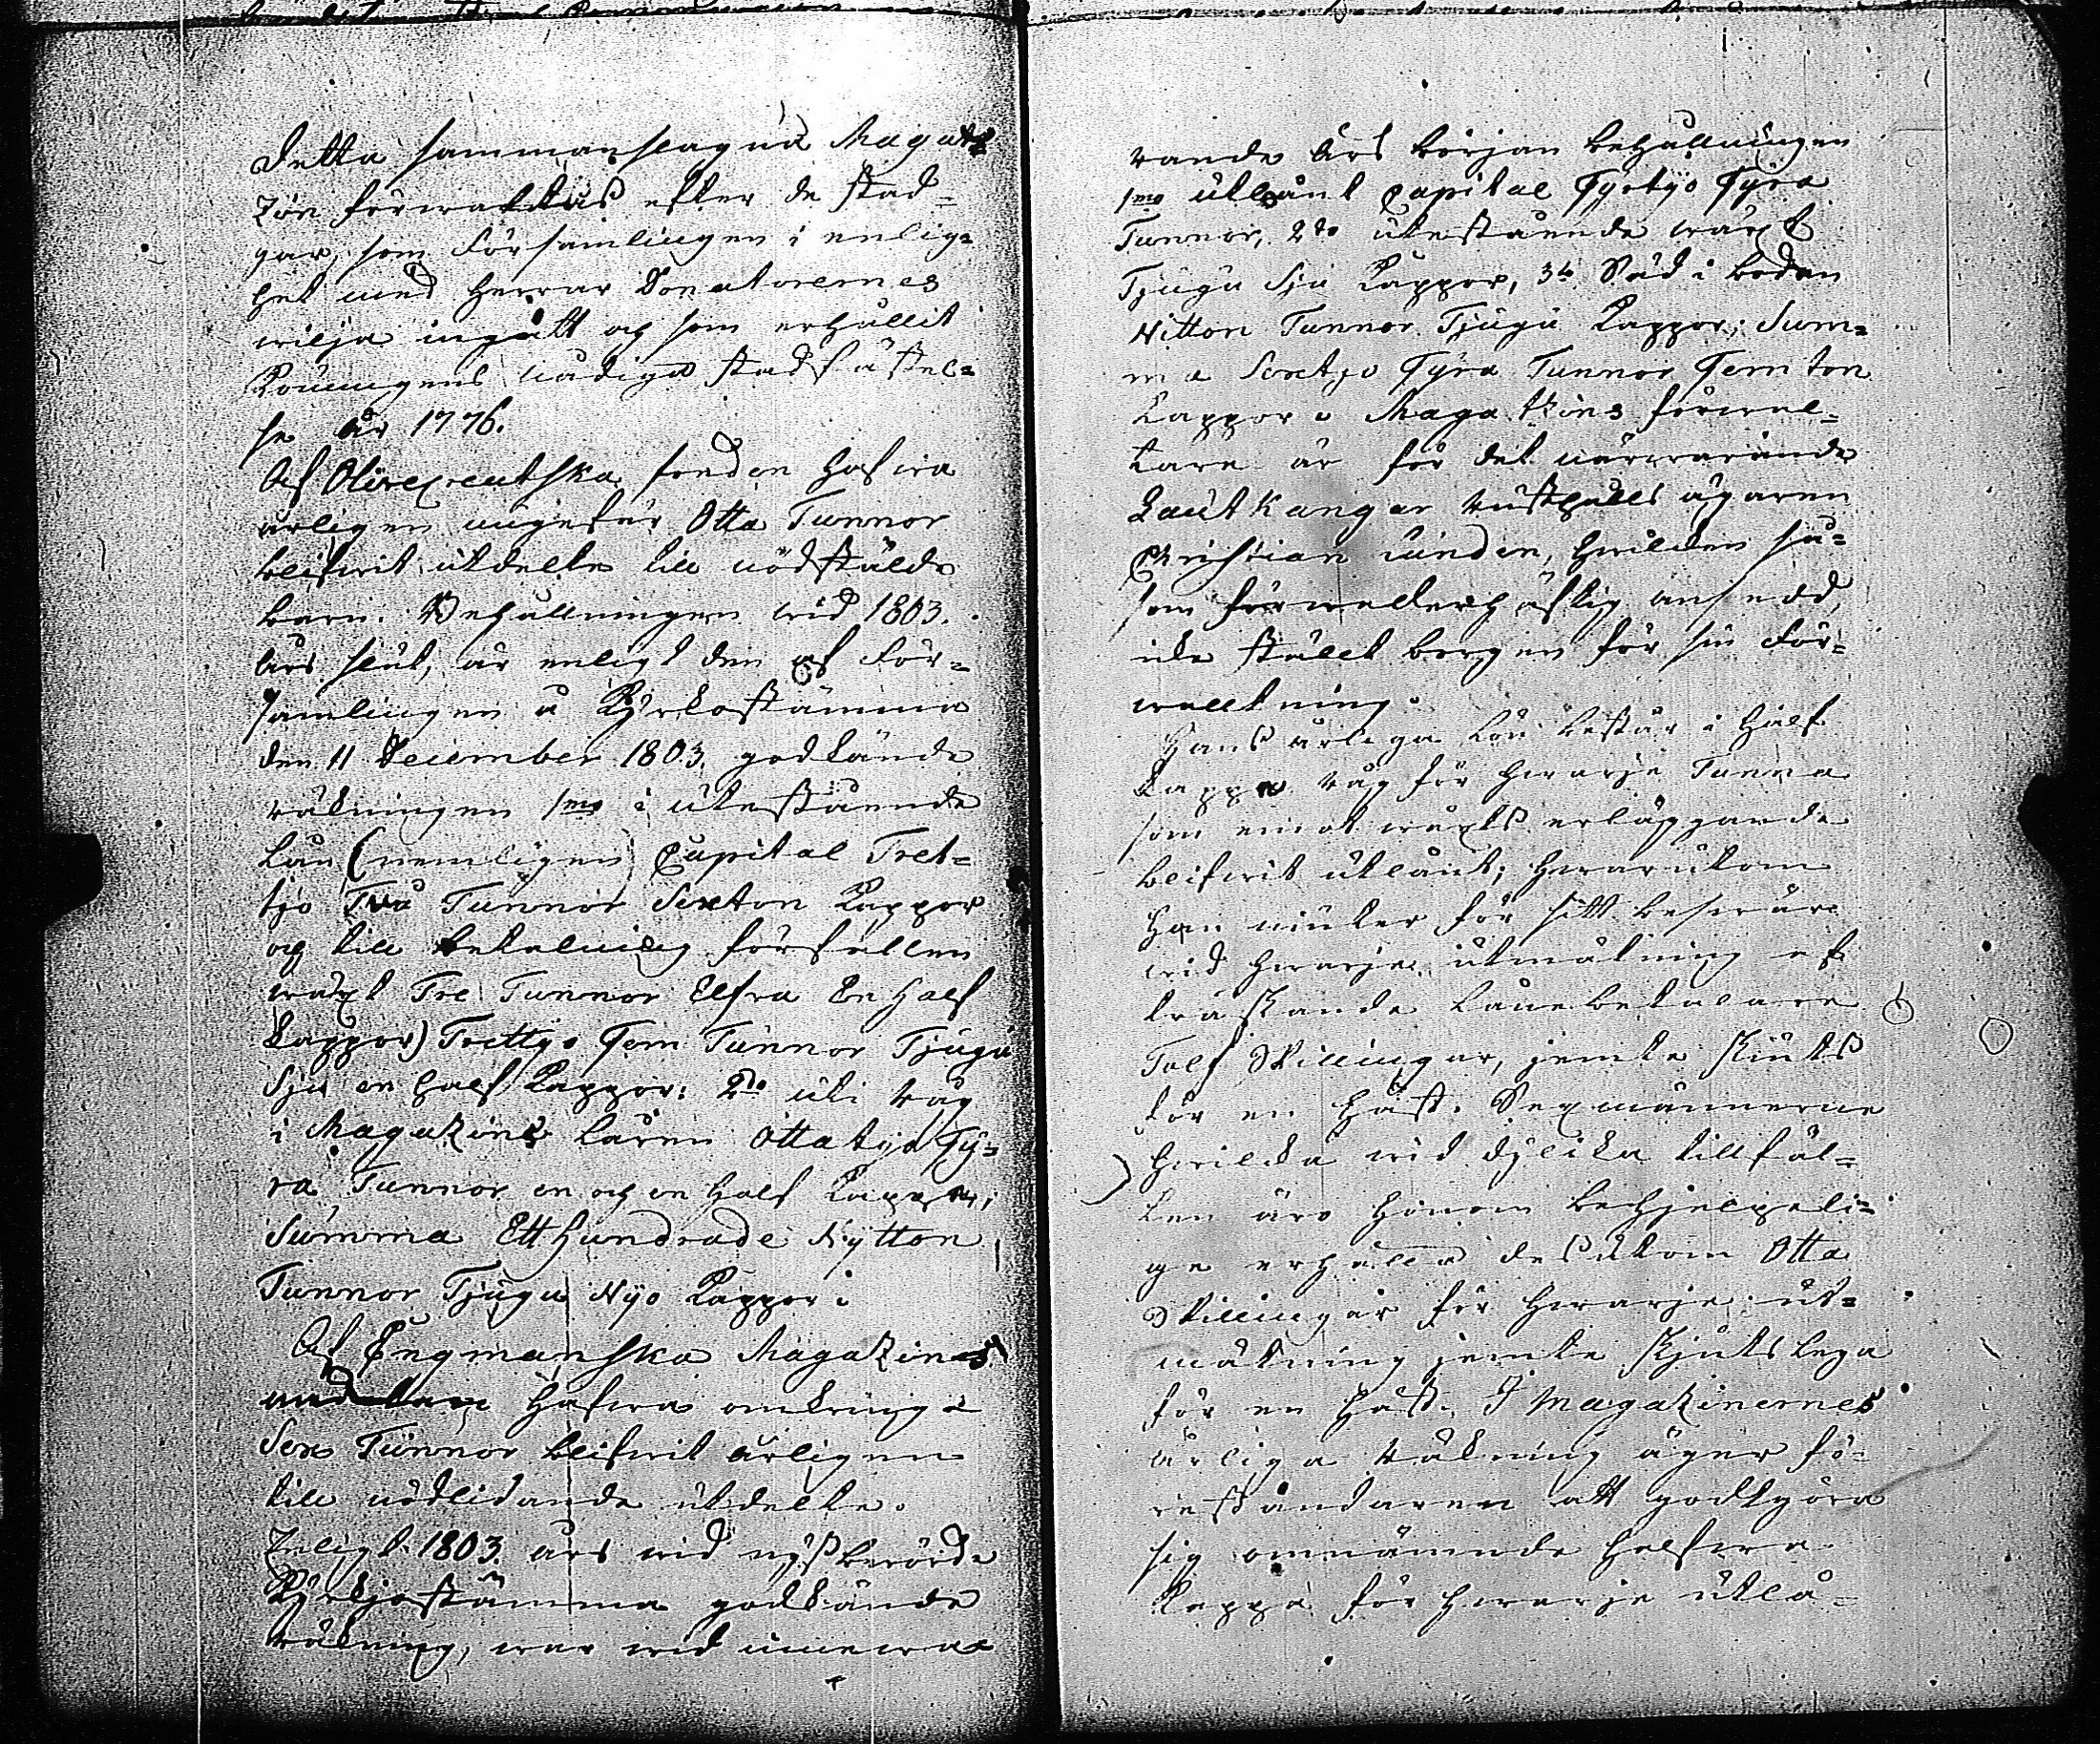 Detta sammanslagna Magat=
zin förwaltas efter de stad=
gar, som Församlingen i enlig=
het med Herrar Donatorernes
wilja ingått och som erhållit
Konungens nådiga stadfästel=
se år 1776.
Af Olivecreutzska fonden hafwa
årligen ungefär Otta Tunnor
blifwit utdelte till nödstälde
barn. Behållningen wid 1803.
års slut, är enligt den af För=
samlingen å Kyrkostämma
den 11 December 1803. godkände
räkningen 1mo i utestående
Lån (nemligen Capital Tret=
tjo Två Tunnor Sexton Kappor
och till betalning förfallen
wäxt Tre Tunnor Elfva En half
Kappor) Trettyo Fem Tunnor Tjugu
Sju en half Kappor: 2do uti råg
i Magazins Låren Ottatijo Fy=
ra Tunnor en och en half Kappa;
Summa Ett Hundrade Nytton
Tunnor Tjugu Nyo Kappor.
Af Engmanska Magazinet
hafwa omkring
Sex Tunnor blifwit årligen
till nödlidande utdelte.
Enligt 1803. års wid nyssberörde
Kyrkjostämma godkände
räkning, war wid innewa=
rande års början behållningen
1mo utlånt Capital Fyrtyo Fyra
Tunnor, 2do utestående wäxt
Tjugu Sju Kappor, 3to Säd i boden
Nitton Tunnor Tjugu Kappor; Sum=
ma Sextjo Fyra Tunnor Femton
Kappor. Magatzins förwal=
tare är för det närwarande
Lautkangar rusthålls ägaren
Christian Linden, hwilken så=
som förwederhäftig ansedd,
icke stält borgen för sin För=
waltning.
Hans årliga Lön består i half
Kappa råg för hwarje Tunna
som emot wäxts erläggande
blifwit utlånt; hwarutom
han niuter för sitt beswär
wid hwarje utmätning af
tråskande Lånebetalare
Tolf Skillingar, jemte Skjuts
för en häst. Sexmännerne
hwilka wid dylika tillfäl=
len äro honom behjelpeli=
ge erhålla dessutom Otta
Skillingar för hwarje ut=
mätning jemte Skjutslega
för en häst. I Magazinernes
årliga räkning äger fö=
reståndaren att godtgöra
sig omnämnde halfwa
Kappa för hwarje utlå=